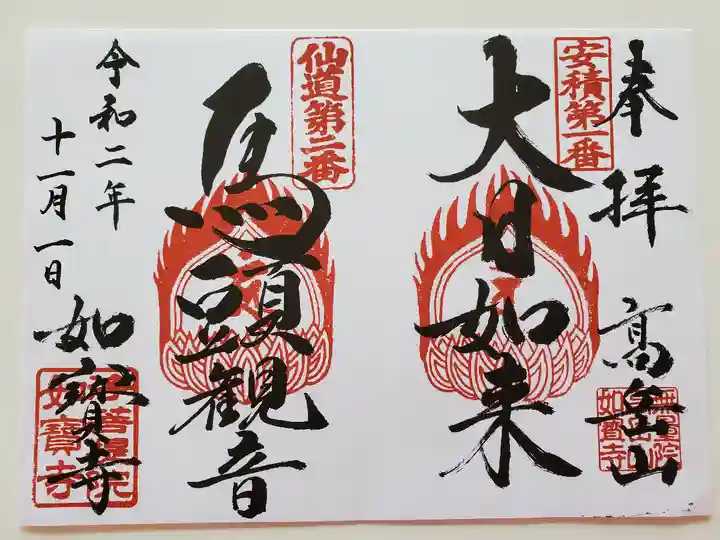 奉拝 高岳山
安積第一番
大日如来
仙道第二番
馬頭観音
令和二年
十一月一日
如寳寺
如寳寺
如寳寺